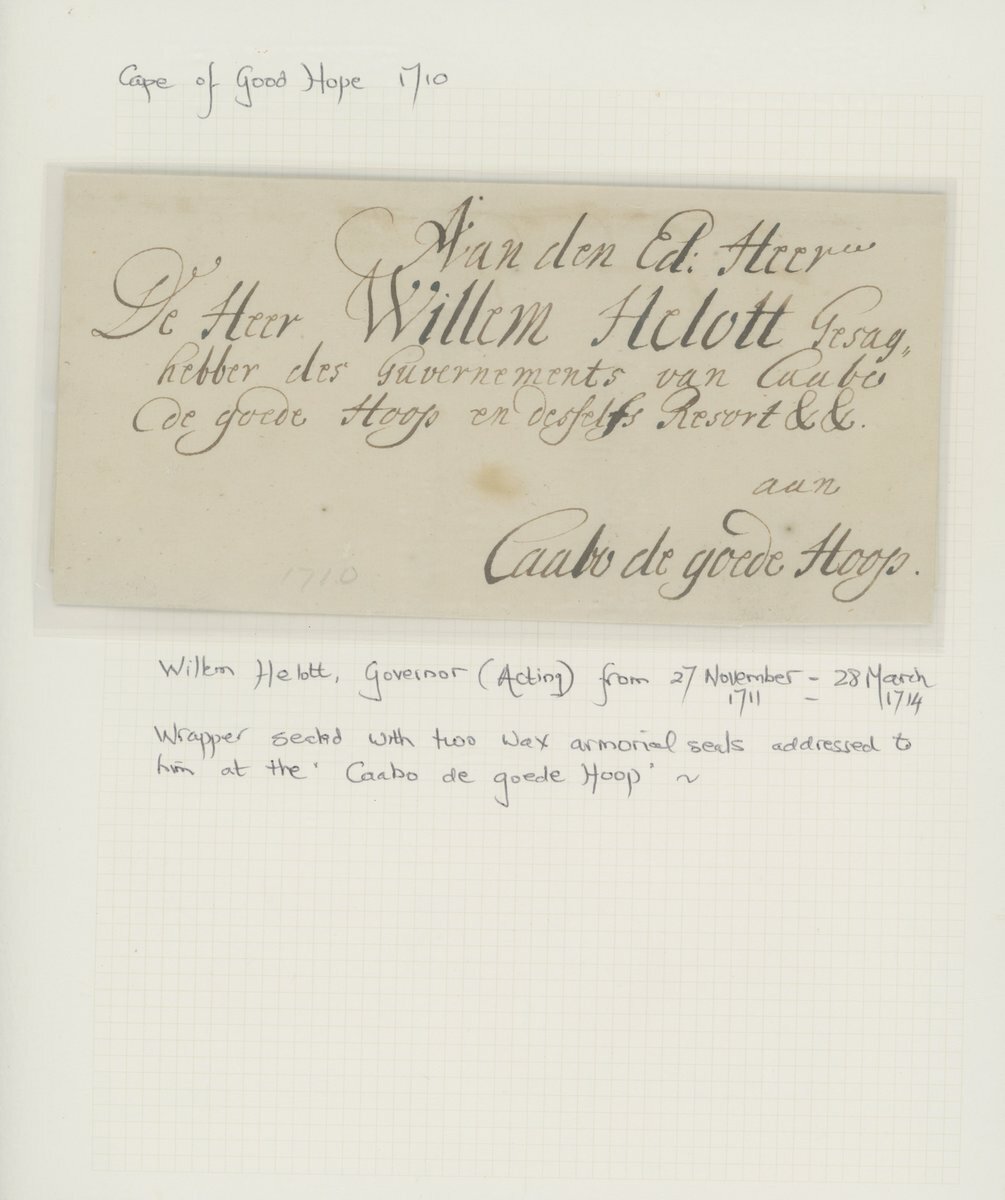 Cape of Good Hope 1710
Aan den Ed: Heere
De Heer Willem Helott Gesag„
hebber des Guvernements van Caabo
de goede Hoop en desselfs Resort && .
aan
Caabo de goede Hoop.
1710
Willem Helott, Governor (Acting) from 27 November - 28 March
1711 - 1714
Wrapper sealed with two wax armorial seals addressed to
him at the ' Caabo de goede Hoop ' ~